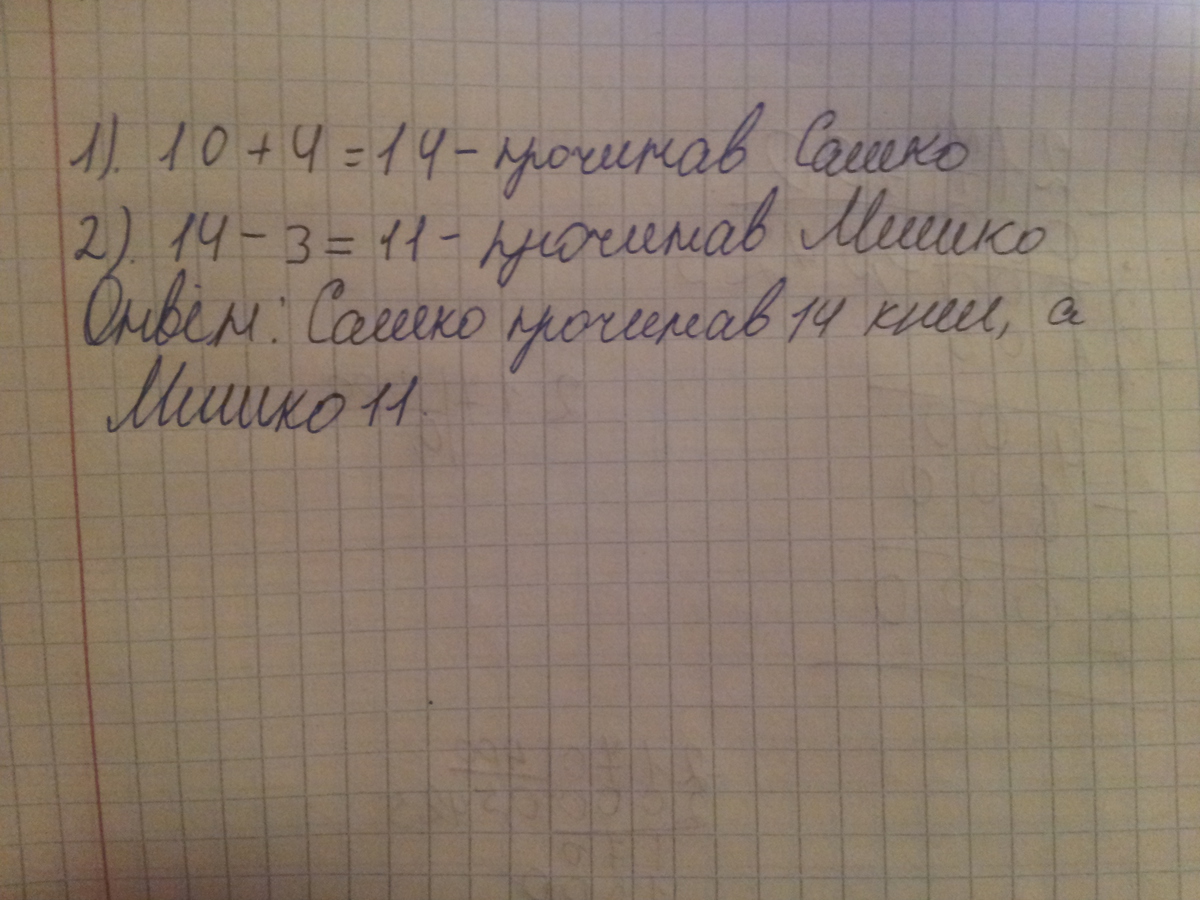 1). 10 + 4 = 14 - прочитав Сашко
2). 14 - 3 = 11 - прочитав Мишко
Ответ: Сашко прочитав 14 книг, а
Мишко 11.